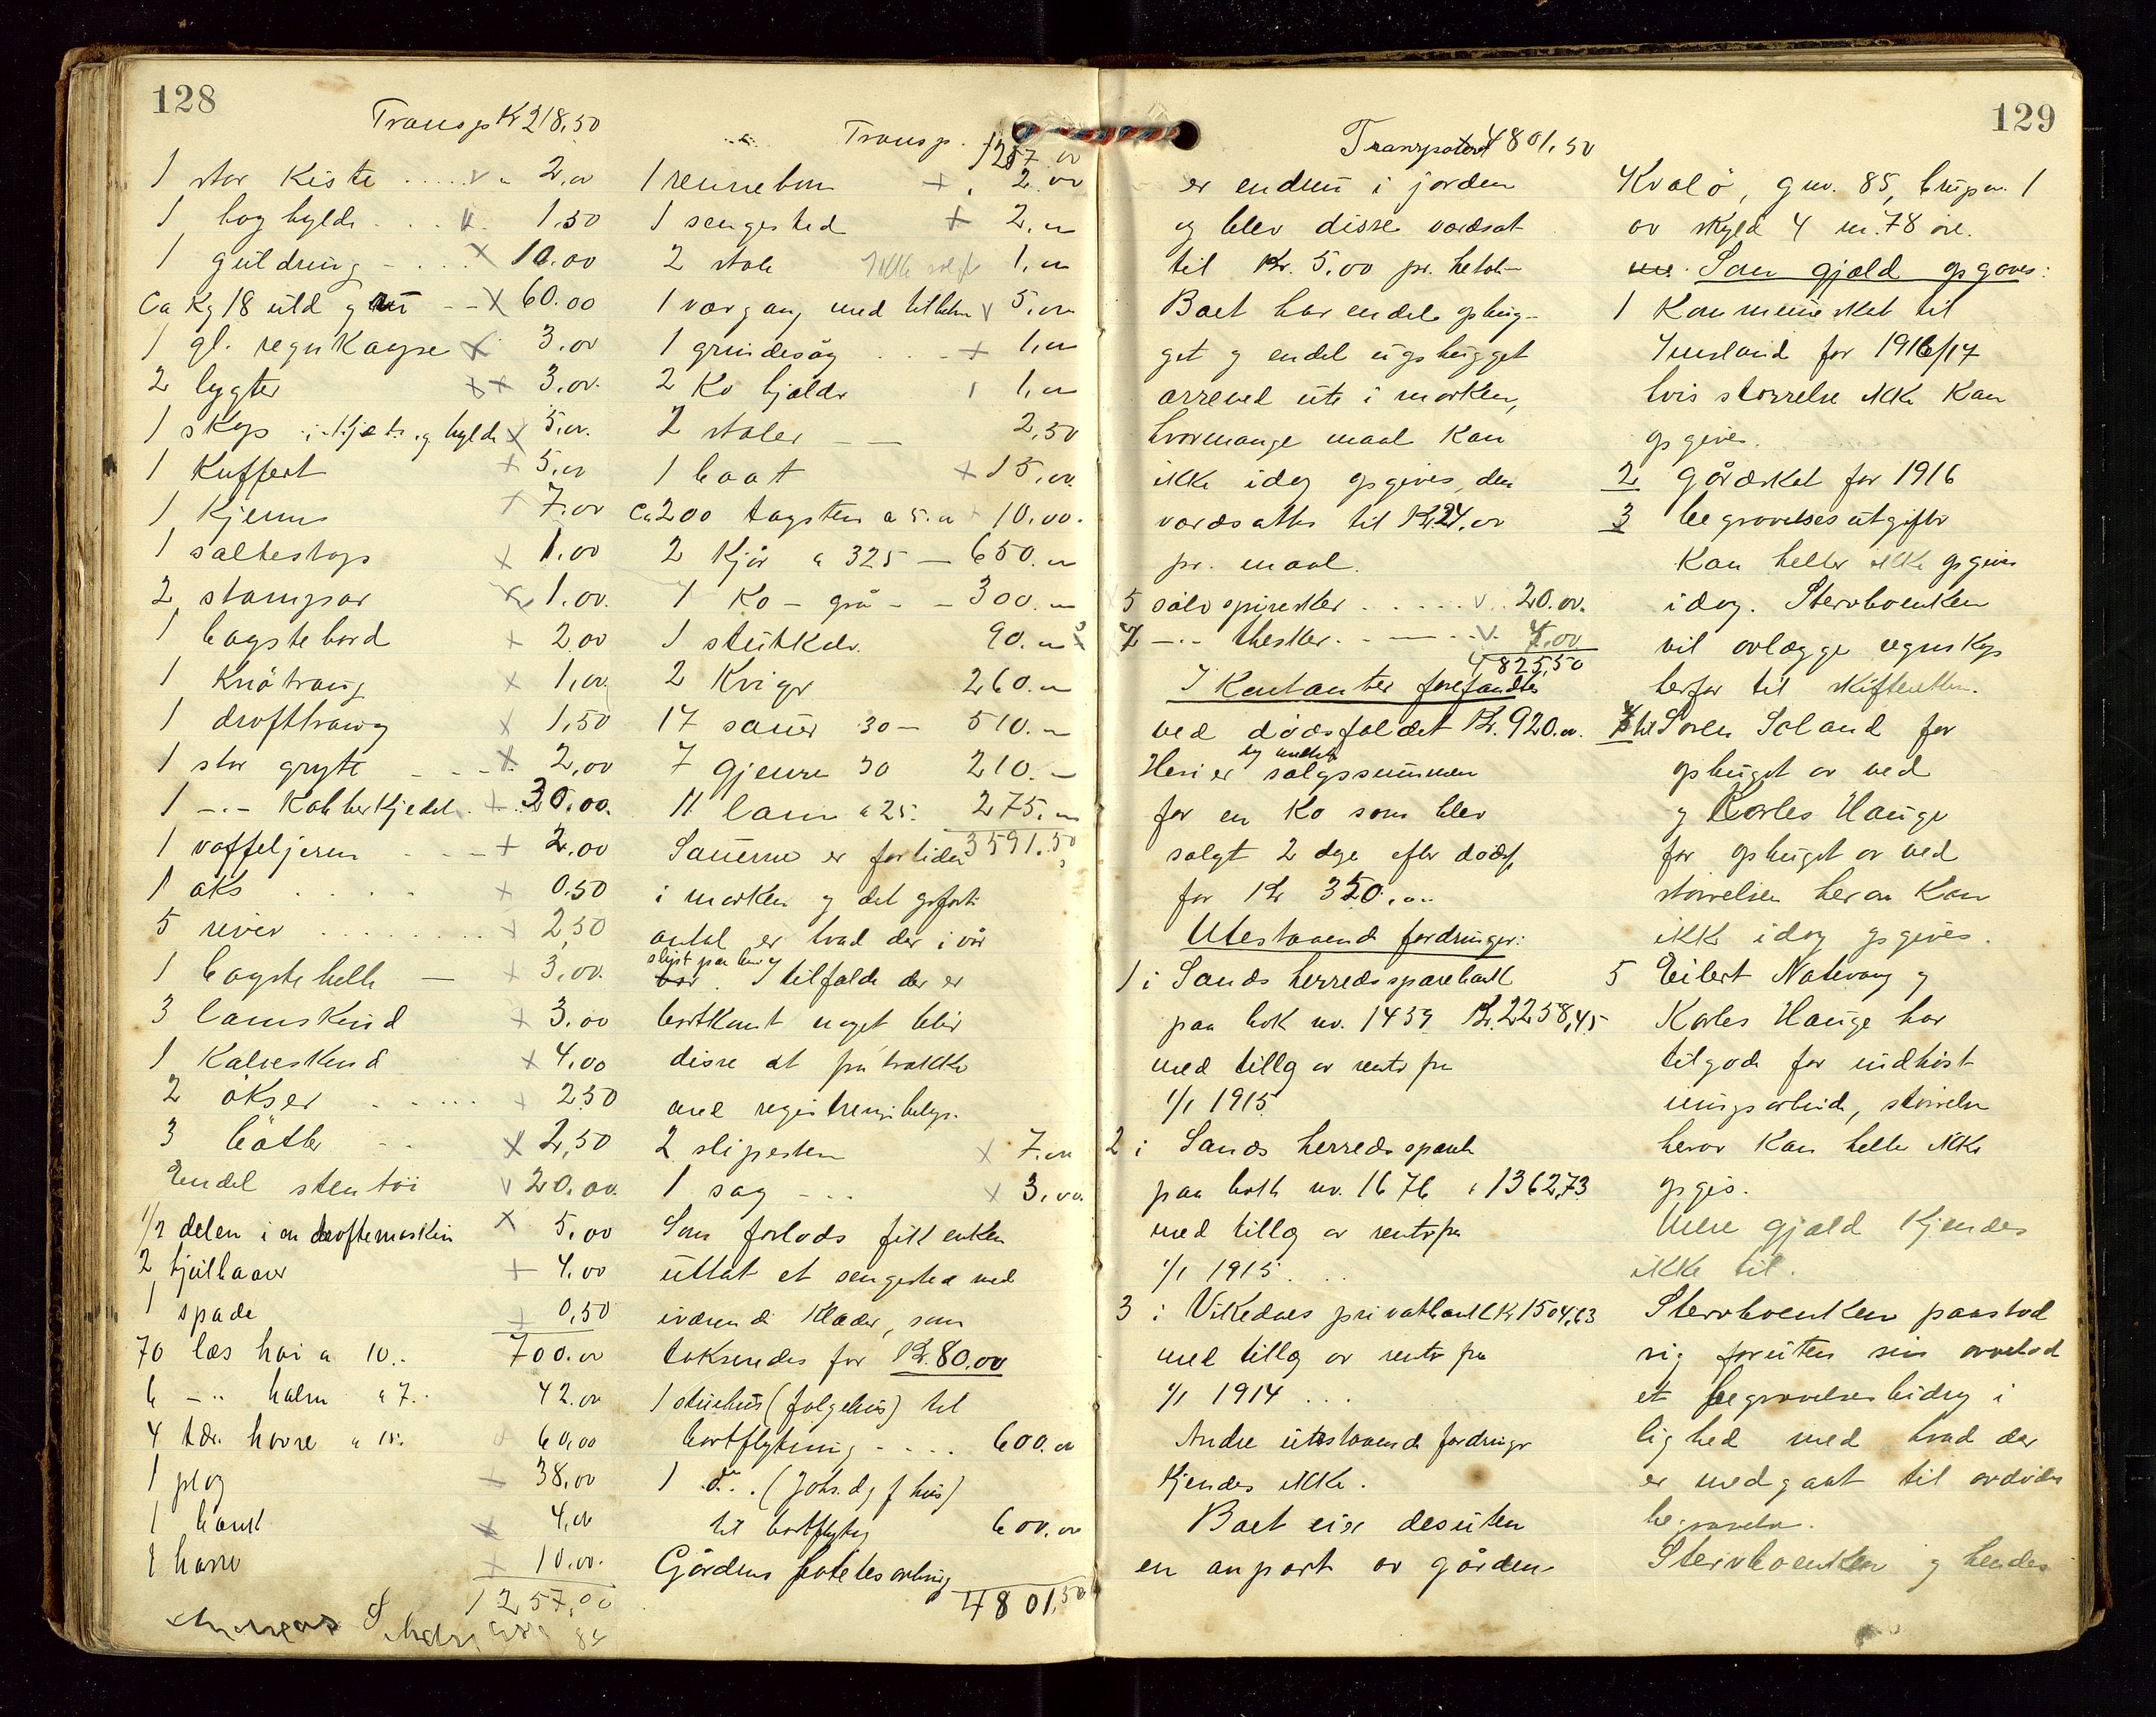 128
Transp Kr 218,50
1 stor Kiste ..... 2,00
1 boghylde .... 1.50
1 guldring - ... 10.00
Ca Kg 18 uld graa -- 60.00
1 gl. regnkappe 3.00
2 lygter 3.00.
1 skap i Kjøk. og hylde 5.00.
1 Kuffert 5.00
1 Kjerne 7.00
1 saltestop 1.00
2 stampar 1.00.
1 bagstebord 2.00
1 Knåtraug 1,00
1 drofttraug 1,50
1 stor gryte - - - 2,00
1 -"- Kobberkjedel 30.00.
1 vaffeljern - - - 2.00
1 aks .... 0.50
5 river ........ 2,50
1 bagstehelle — 3,00.
3 lamskind 3.00
1 Kalveskind 4,00
2 økser ..... 2.50
3 bøtter .. 2,50
Endel stentøi 20.00.
1/2 delen i en drøftemaskin 5.00
2 hjulbaarer 4.00
1 spade 0,50
70 læs høi a 10.. 700.00
6 -"- halm a 7.. 42.00
4 tdr. havre a 15. 60.00
1 plog 38,00
1 4,00
1 harv 10.00.
1257,00
Andreas
Transp. 1257.00
1 rennebom 2.00
1 sengested 2,00
2 stole Ikke solgt 1,00
1 værgang med tilbehør 5,00
1 grindesåg ... 1,00
2 Ko bjælder 1,00
2 stoler — — 2,50
1 baat 15,00.
Ca 200 tagsten a 5.00 10.00.
2 Kjør a 325 — 650.00
1 Ko - grå - - 300.00
1 stutkalv. 90.00
2 Kviger 260.00
17 sauer 30 - 510.00
7 gjeiter 30 210.-
11 lam a 25. 275.00
3591.50
Sauerne er fortiden
i marken og det opførte
antal er hvad der i vår
slipt paa beite
var. I tilfælde der er
bortkomt noget blir
disse at fratrække
ved registreringsbeløp.
2 slipesten 7.00
1 sag - .. 3,00.
Som forlods fik enken
uttat et sengested med
iværende Klæder, som
taksendes for Kr. 80,00
1 stuehus (følgehus) til
bortflytning .... 600.00
1 do.. (Johs. d. g f hus)
til bortflytng 600.00
Gårdens potetesavling
4801.50
129
Transpotert 4801.50
er endnu i jorden
og blev disse værdsat
til Kr. 5.00 pr. hektol-
Boet har endel ophug-
get og endel uophugget
orreved ute i marken,
hvormange maal Kan
ikke idag opgives, den
værdsattes til Kr 24.00
pr. maal.
5 sølvspiseskeer ..... 20.00.
7 -"- theskeer .. -- .. 4.00
4825,50
I Kontanter forefandtes
ved dødsfaldet Kr. 920.00.
bl andet
Heri er salgssummen
for en Ko som blev
solgt 2 dage efter dødsf.
for Kr 350.00
Utestaaende fordringer:
1 i Sands herreds sparebank
paa bok nr. 1439 Kr. 2258,45
med tillæg av rente fra
1/1 1915
2 i Sands herreds spareb
paa bok nr. 1676 " 1362,73
med tillæg av rente fra
1/1 1915 . . .
3 i Vikedals privatbank Kr 1504,63
med tillæg av rente fra
1/1 1914 . . .
Andre utestaaende fordringer
Kjendes ikke.
Boet eier desuten
en anpart av gården-
Kvalø, gnr. 85, bruksnr. 1
av skyld 4 m. 78 øre.
Som gjæld opgaves:
1 Kommuneskat til
Imsland for 1916/17
hvis størrelse ikke Kan
opgives.
2 Gårdskat for 1916
3 begravelsesutgifter
Kan heller ikke opgives
idag. Stervboenken
vil avlægge regnskap
herfor til skifteretten.
4 til Søren Søland for
ophugst av ved
og Karles Hauge
for ophugst av ved
størrelsen herav Kan
ikke idag opgives.
5 Eilert Natvang og
Karles Hauge har
tilgode for indhøst
ningsarbeide, størrelse
herav Kan heller ikke
opgis.
Mere gjæld Kjendes
ikke til.
Stervboenken paastod
sig foruten sin arvelod
et begravelsesbidrag i
lighed med hvad der
er medgaat til avdødes
begravelse.
Stervboenken og hendes